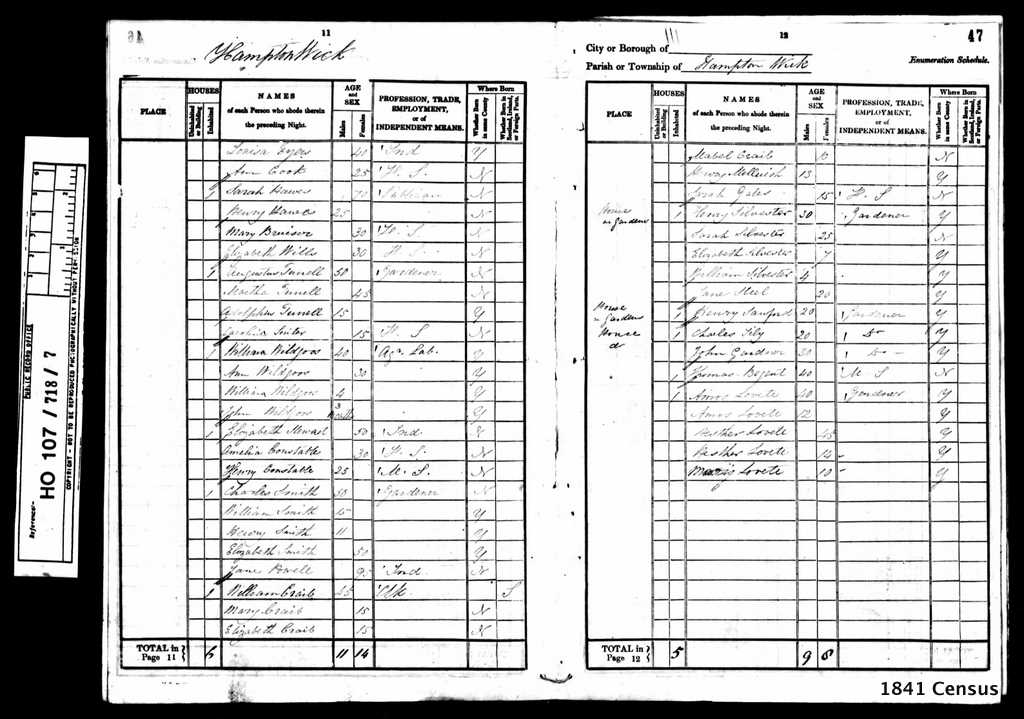 11
Hampton Wick
PLACE HOUSES NAMES of each Person who abode therein the preceding Night. AGE and SEX PROFESSION, TRADE, EMPLOYMENT, or of INDEPENDENT MEANS. Where Born
Uninhabited or Building Inhabited Males Females Whether Born in same County Whether Born in Scotland, Ireland, or Foreign Parts.
Louisa 40 Ind Y
Ann Cook 25 F. S N
1 Sarah Hawes N
Henry Hawes 25 N
Mary 30 F. S N
Elizabeth Wills 30 F. S N
1 Augustus 50 Gardener N
Martha 45 N
Adolphus 15 Y
15 F. S N
1 William Wildgoos 40 Ag. Lab. Y
Ann Wildgoos 30 Y
William Wildgoos 4 Y
John 3 Y
1 Elizabeth 50 Ind
Amelia Constable 30 F. S N
Henry Constable 25 M. S. N
1 Charles Smith 50 Gardener N
William Smith 15 Y
Henry Smith 11 Y
Elizabeth Smith 50 Y
Jane Powell Ind N
1 William Craib 25 Clk S
Mary Craib 15 N
Elizabeth Craib 15 N
TOTAL in Page 11 } 6 11 14
12
47
City or Borough of
Parish or Township of Hampton Wick
Enumeration Schedule.
PLACE HOUSES NAMES of each Person who abode therein the preceding Night. AGE and SEX PROFESSION, TRADE, EMPLOYMENT, or of INDEPENDENT MEANS. Where Born
Uninhabited or Building Inhabited Males Females Whether Born in same County Whether Born in Scotland, Ireland, or Foreign Parts.
Mabel Craib N
13 Y
Sarah Gates 15 F. S N
House in Gardens 1 Henry Silvester 30 Gardener Y
Sarah Silvester 25 N
Elizabeth Silvester 7 Y
William Silvester 4 Y
Jane 20 Y
House in Gardens 1 Henry 20 Gardener Y
House do 1 Charles 20 Do Y
John Gardner 30 Do Y
1 Thomas 40 M S N
1 Amos Lovete 40 Gardener Y
Amos Lovete 12 Y
Hesther Lovete 45 Y
Hesther Lovete 14 Y
Lovete 10 Y
TOTAL in Page 12 } 5 9 8
PUBLIC RECORD OFFICE
Reference:-
HO 107 / 718 / 7
COPYRIGHT - NOT TO BE REPRODUCED PHOTOGRAPHICALLY WITHOUT PERMISSION
1841 Census